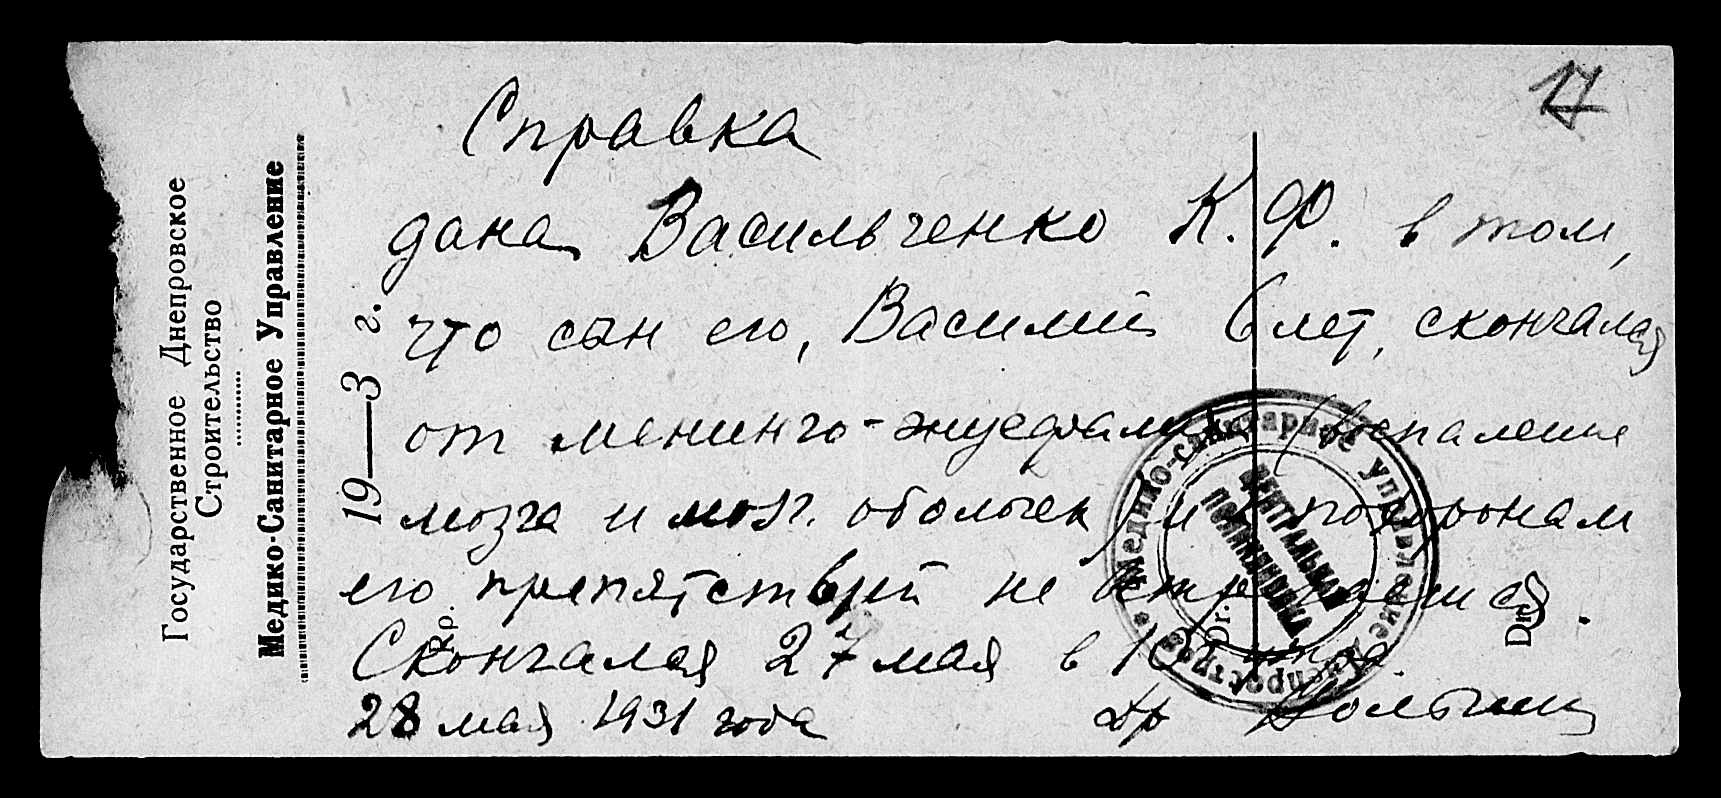 17
Государственное Днепровское
Строительство
Медико-Санитарное Управление
19—3 г.
Справка
дана Васильченко К. Ф. в том,
что сын его, Василий 6 лет, скончался
от менинго-энцефалита (воспаление
мозга и мозг. оболочек) и к похоронам
его препятствий не встречается.
Скончался 27 мая в 10
28 мая 1931 года
Др
Rp.
Dr.
Dr.
Медико-Санитарное Управление Днепрострой
ЦЕНТРАЛЬНАЯ
ПОЛИКЛИНИКА